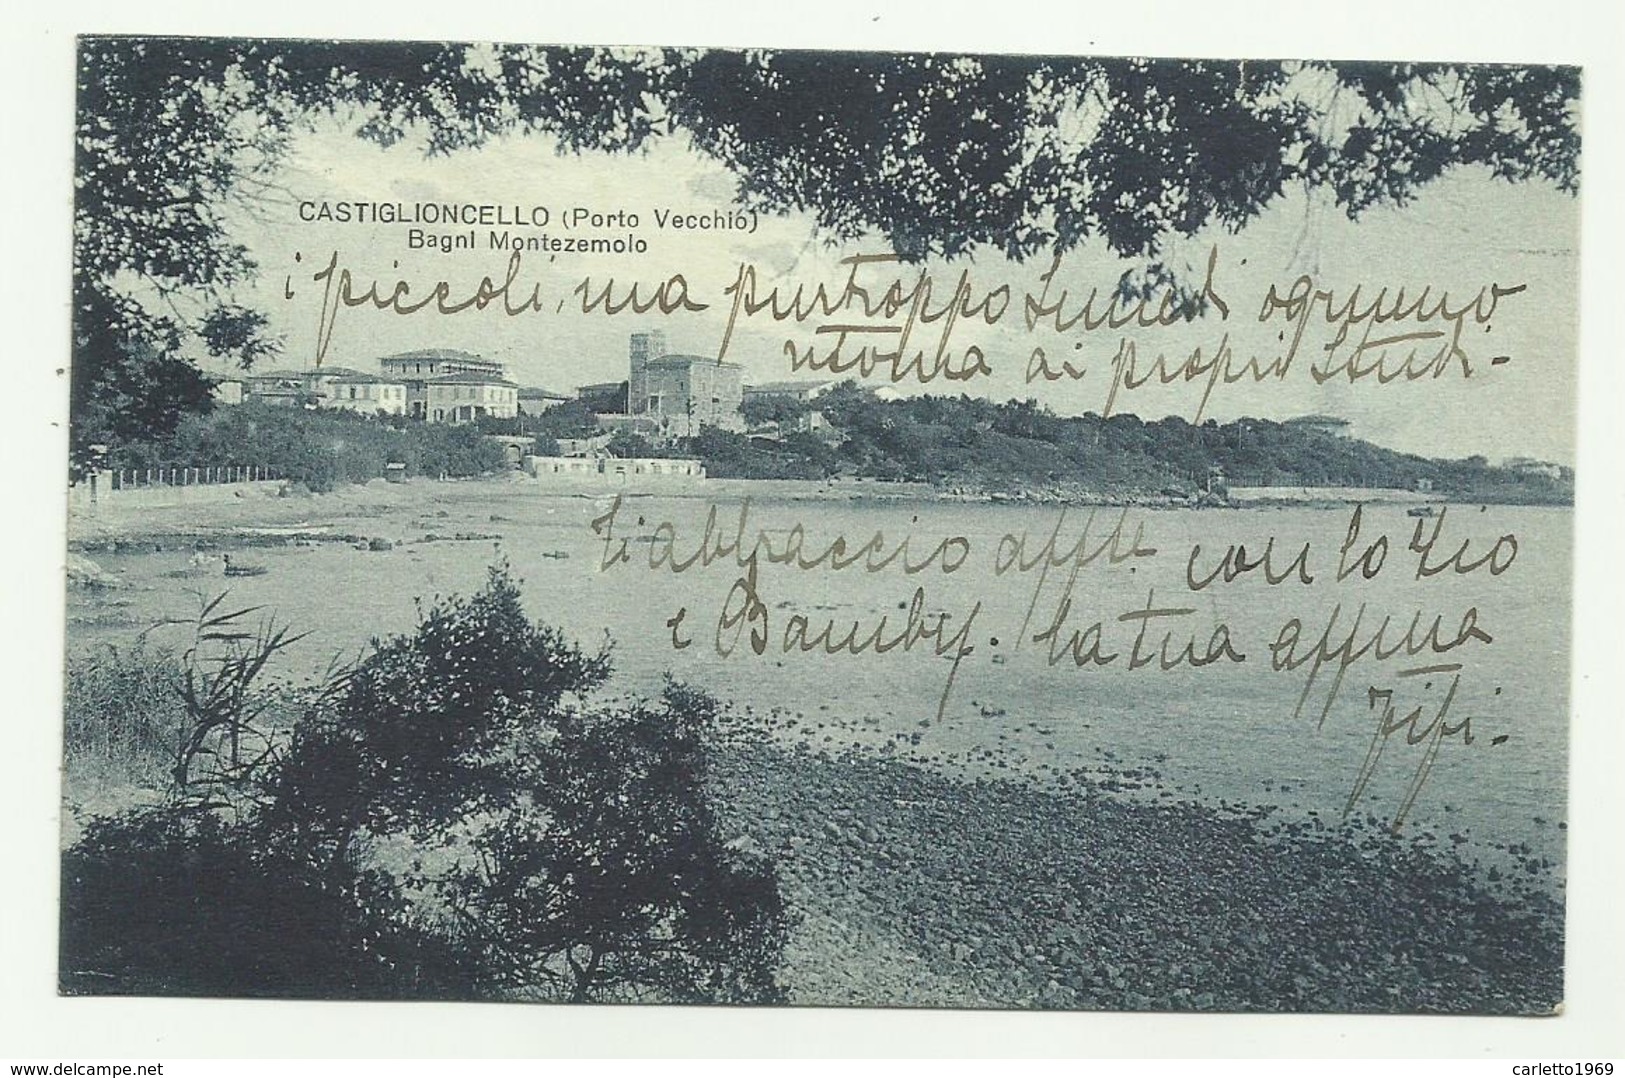 CASTIGLIONCELLO (Porto Vecchio)
Bagni Montezemolo
i piccoli, ma purtroppo Lunedi ognuno
ritorna ai propri studi -
ti abbraccio affte con lo Zio
e Bamby. La tua affma
Fifi.
www.delcampe.net
carletto1969